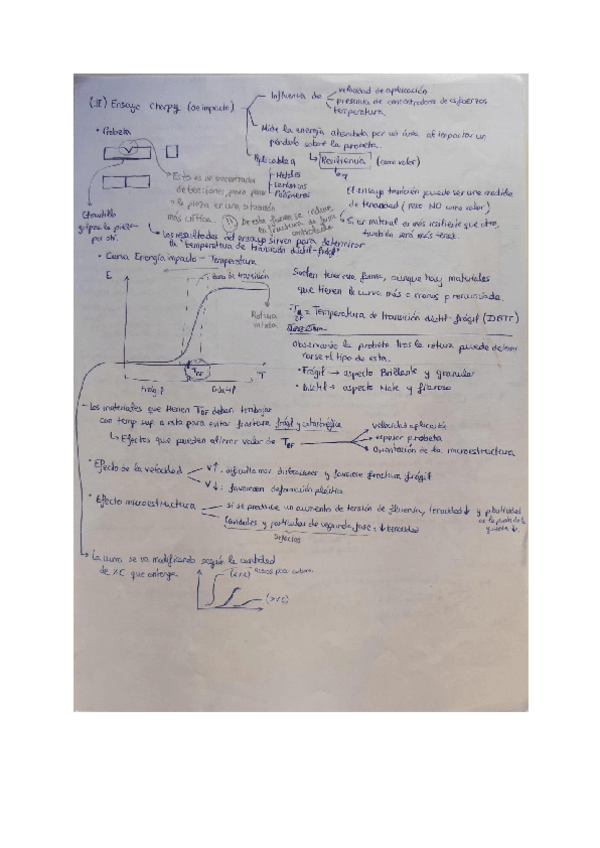 (II) Ensayo Charpy (de impacto)
Influencia de
velocidad de aplicación
presencia de concentradores de esfuerzos
temperatura.
Mide la energía absorbida por un área al impactar un
péndulo sobre la probeta.
Aplicable a
Resiliencia (como valor)
Metales
Cerámicos
Polímeros
• Probeta
Esto es un concentrador
de tensiones, para poner
a la pieza en una situación
más crítica.
De esta forma se induce
la fractura de forma
controlada
Cuchillo
golpea la pieza
por ahí.
El ensayo también puede ser una medida
de tenacidad (pero NO como valor)
Si un material es más resiliente que otro,
también será más tenaz.
Los resultados del ensayo sirven para determinar
la "temperatura de transición dúctil-frágil"
• Curva Energía impacto - Temperatura
E
zona de transición
Rotura
mixta
T
Frágil
Dúctil
Suelen tener esa forma, aunque hay materiales
que tienen la curva más o menos pronunciada.
= Temperatura de transición dúctil-frágil (DBTT)
Observando la probeta tras la rotura puede determi
narse el tipo de esta.
• Frágil → aspecto Brillante y granular
• Dúctil → aspecto Mate y fibroso
- Los materiales que tienen TDF deben trabajar
con temp sup. a esta para evitar fractura frágil y catastrófica
Efectos que pueden afirmar valor de TDF
velocidad aplicación
espesor probeta
Orientación de la microestructura
• Efecto de la velocidad
V↑: dificulta mov. dislocaciones y favorece fractura frágil
V↓: favorecen deformación plástica
• Efecto microestructura
si se produce un aumento de tensión de fluencia, tenacidad ↓ y plasticidad
en la punta de la
grieta ↓.
Cavidades y partículas de segunda fase: ↓ tenacidad
La curva se va modificando según la cantidad
de %C que contenga.
(<%C)
(>%C)